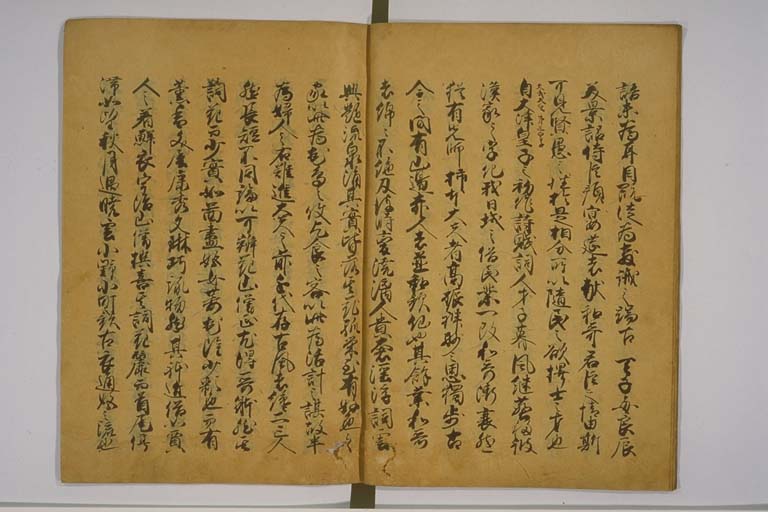 語未為耳目翫徒為教誡之端古 天子每良辰
美景詔侍臣預宴莚者献和哥君臣之情由斯
可見賢愚之性於是相分所以随民之欲擇士之才也
自大津皇子之初作詩賦詞人才子慕風継塵移彼
漢家之字化我日域之俗民業一改和哥漸衰然
猶有先師柿本大夫者高振神妙之思獨步古
今之間有山邊赤人者並和歌仙也其餘業和哥
者綿々不絶及彼時變澆漓人貴奢淫浮詞雲
興艶流泉涌其實皆落其花孤榮至有好色之
家以此為花鳥之使乞食之客以此為活計之謀故半
為婦人之右難進大夫之前近代存古風者纔二三人
然長短不同論以可辨花山僧正尤得哥躰然其
詞花而少實如圖畫好女萎花雖少彩色而有
薫香文屋康秀文琳巧詠物然其躰近俗如賈
人之着鮮衣宇治山僧撰喜其詞花麗而首尾停
滞如望秋月遇暁雲小野小町歌古衣通姫之流也